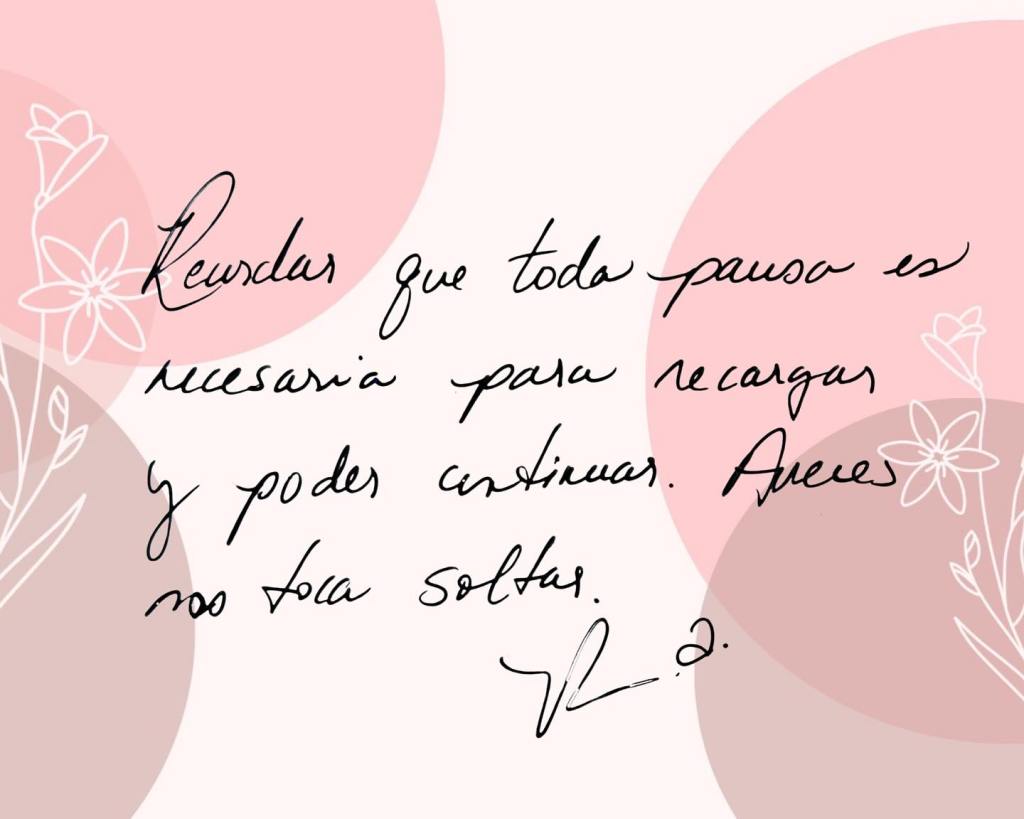 Recordar que toda pausa es
necesaria para recargar
y poder continuar. Aveces
nos toca soltar.